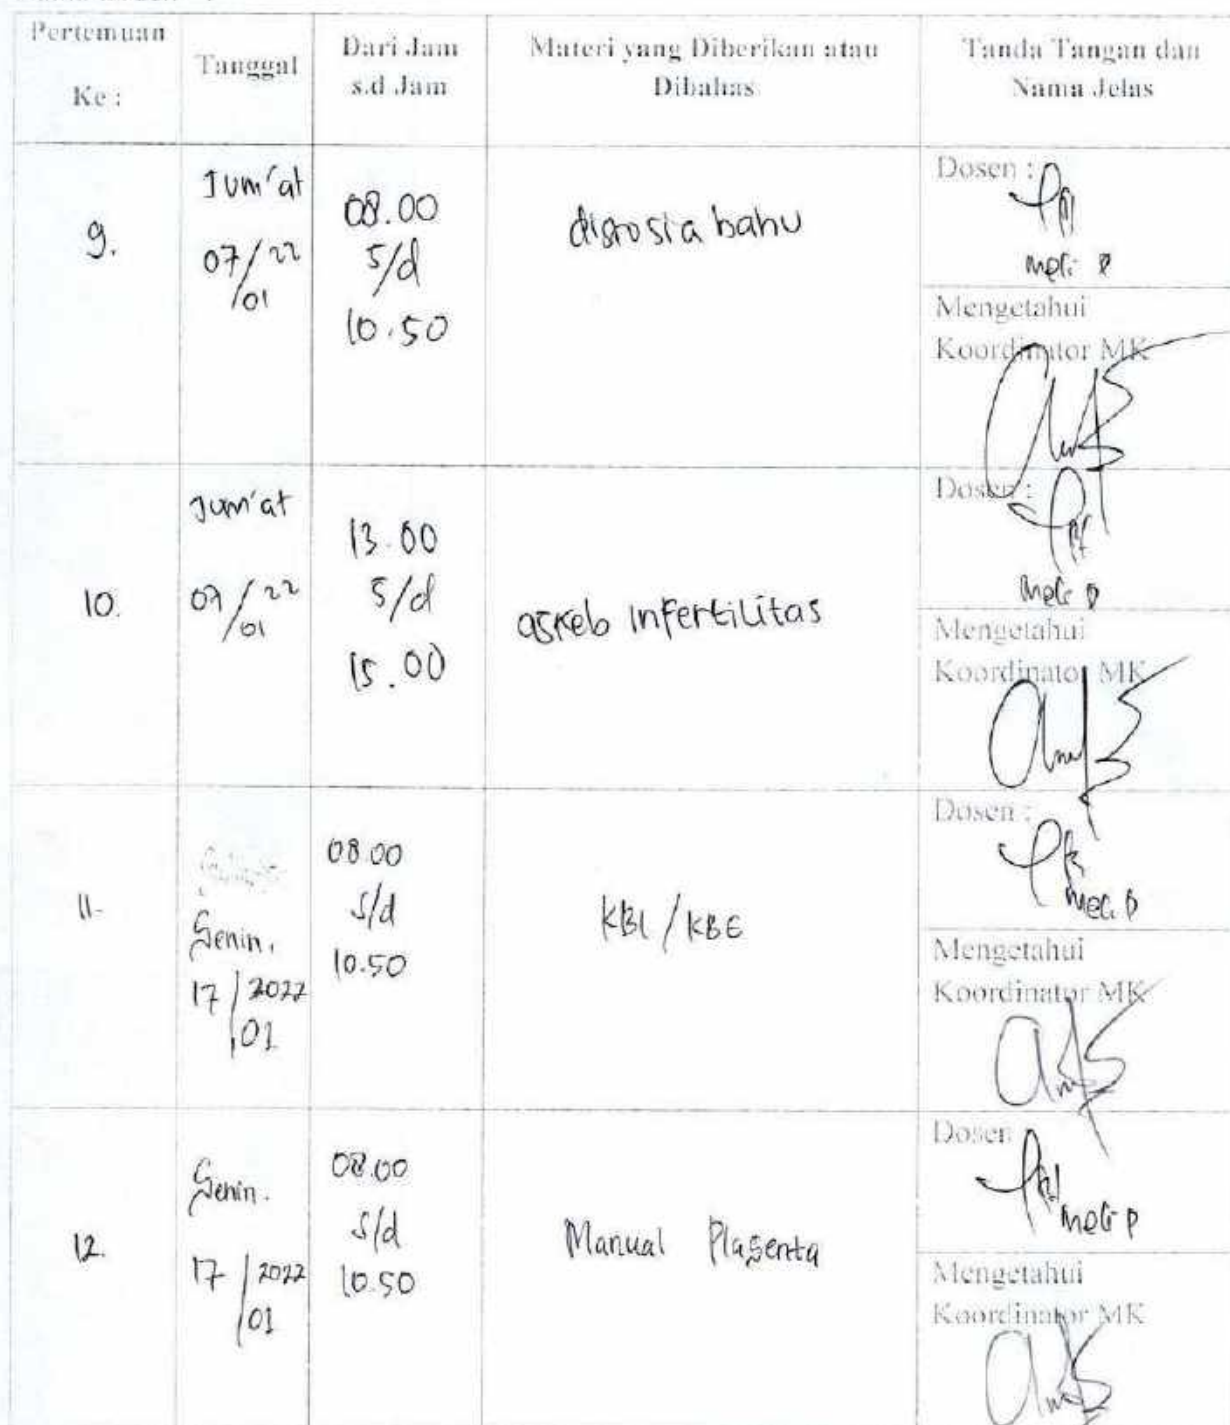 Pertemuan
Ke :
Tanggal
Dari Jam
s.d Jam
Materi yang Diberikan atau
Dibahas
Tanda Tangan dan
Nama Jelas
9.
Jum'at
07/22
/01
08.00
s/d
10.50
distosia bahu
Dosen :
Meli P
Mengetahui
Koordinator MK
10.
Jum'at
07/22
/01
13.00
s/d
15.00
askeb infertilitas
Dosen :
Meli P
Mengetahui
Koordinator MK
11.
Senin,
17/2022
/01
08.00
s/d
10.50
KBI / KBE
Dosen :
Meli P
Mengetahui
Koordinator MK
12.
Senin.
17/2022
/01
08.00
s/d
10.50
Manual Plasenta
Dosen
Meli P
Mengetahui
Koordinator MK